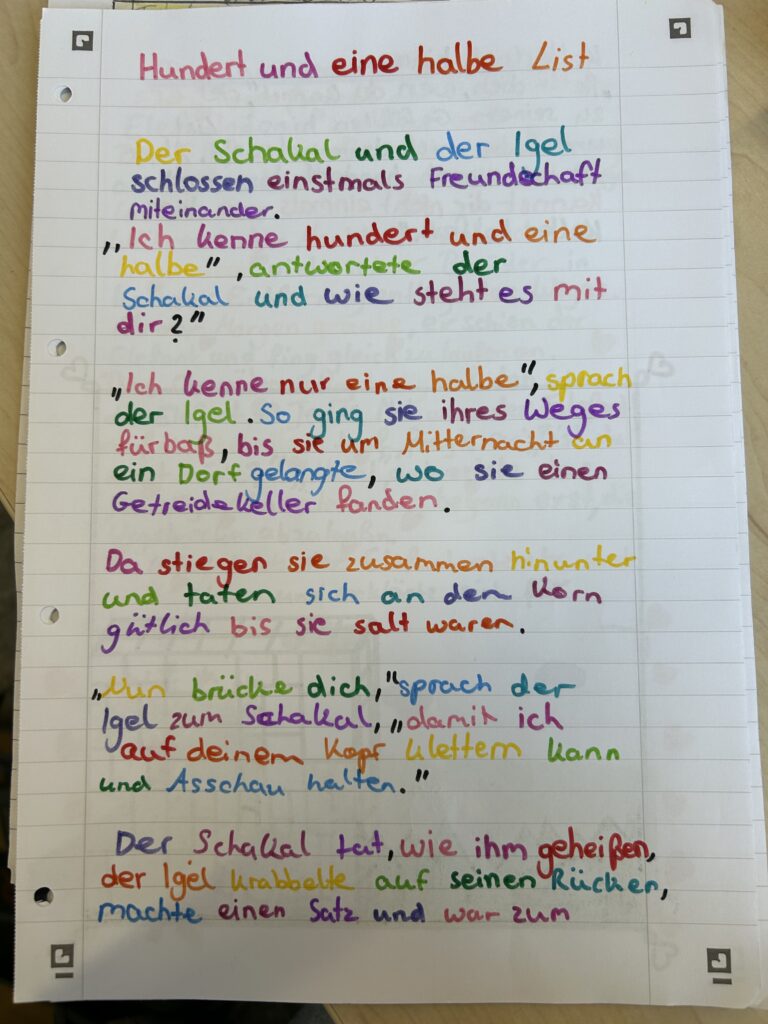 Hundert und eine halbe List
Der Schakal und der Igel
schlossen einstmals Freundschaft
miteinander.
„Ich kenne hundert und eine
halbe", antwortete der
Schakal und wie steht es mit
dir?"
„Ich kenne nur eine halbe", sprach
der Igel. So ging sie ihres Weges
fürbaß, bis sie um Mitternacht an
ein Dorf gelangte, wo sie einen
Getreidekeller fanden.
Da stiegen sie zusammen hinunter
und taten sich an dem Korn
gütlich bis sie salt waren.
„Nun brücke dich, "sprach der
Igel zum Schakal, „damit ich
auf deinem Kopf klettern kann
und Asschau halten."
Der Schakal tat, wie ihm geheißen,
der Igel krabbelte auf seinen Rücken,
machte einen Satz und war zum